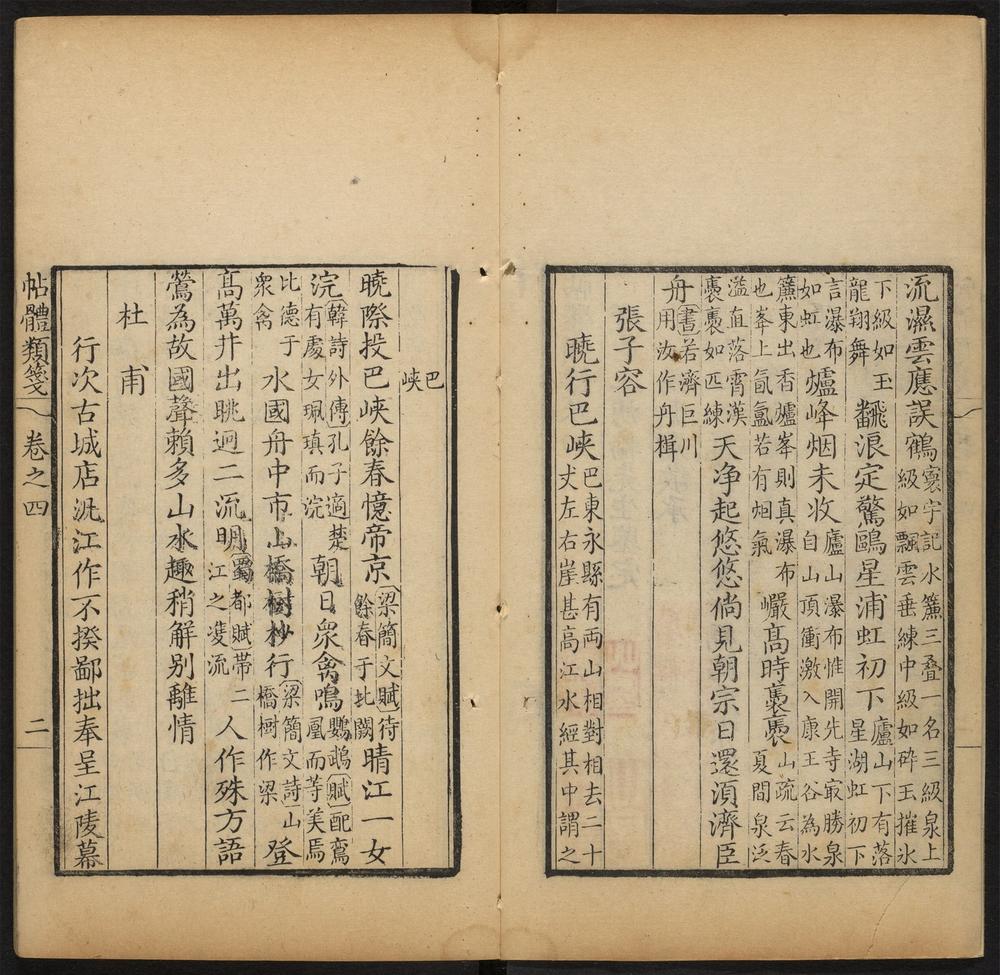 流濕雲應誤鶴寰宇記水簾三叠一名三級泉上
級如飄雲垂練中級如碎玉摧氷
下級如玉
龍翔舞
飜浪定驚鷗星浦虹初下廬山下有落
星湖虹初下
言瀑布
如虹也
爐峰烟未收廬山瀑布惟開先寺㝡勝泉
自山頂衝激入康王谷為水
簾東出香爐峯則真瀑布
也峯上氤氳若有烟氣
巗高時裊裊山疏云春
夏間泉泛
溢直落霄漢
裊裊如匹練
天净起悠悠倘見朝宗日還湏濟臣
舟書若濟巨川
用汝作舟楫
張子容
曉行巴峽巴東永縣有兩山相對相去二十
丈左右崖甚高江水經其中謂之
巴
峽
曉際投巴峽餘春憶帝京梁簡文賦待
餘春于北闕
晴江一女
浣韓詩外傳孔子適楚
有處女珮瑱而浣
朝日衆禽鳴鸚鵡賦配鸞
凰而等美焉
比德于
衆禽
水國舟中市山橋樹杪行梁簡文詩山
橋樹作梁
登
高萬井出眺迥二流明蜀都賦帶二
江之䨇流
人作殊方語
鶯為故國聲賴多山水趣稍解别離情
杜甫
行次古城店汎江作不揆鄙拙奉呈江陵幕
帖體類箋 卷之四 二